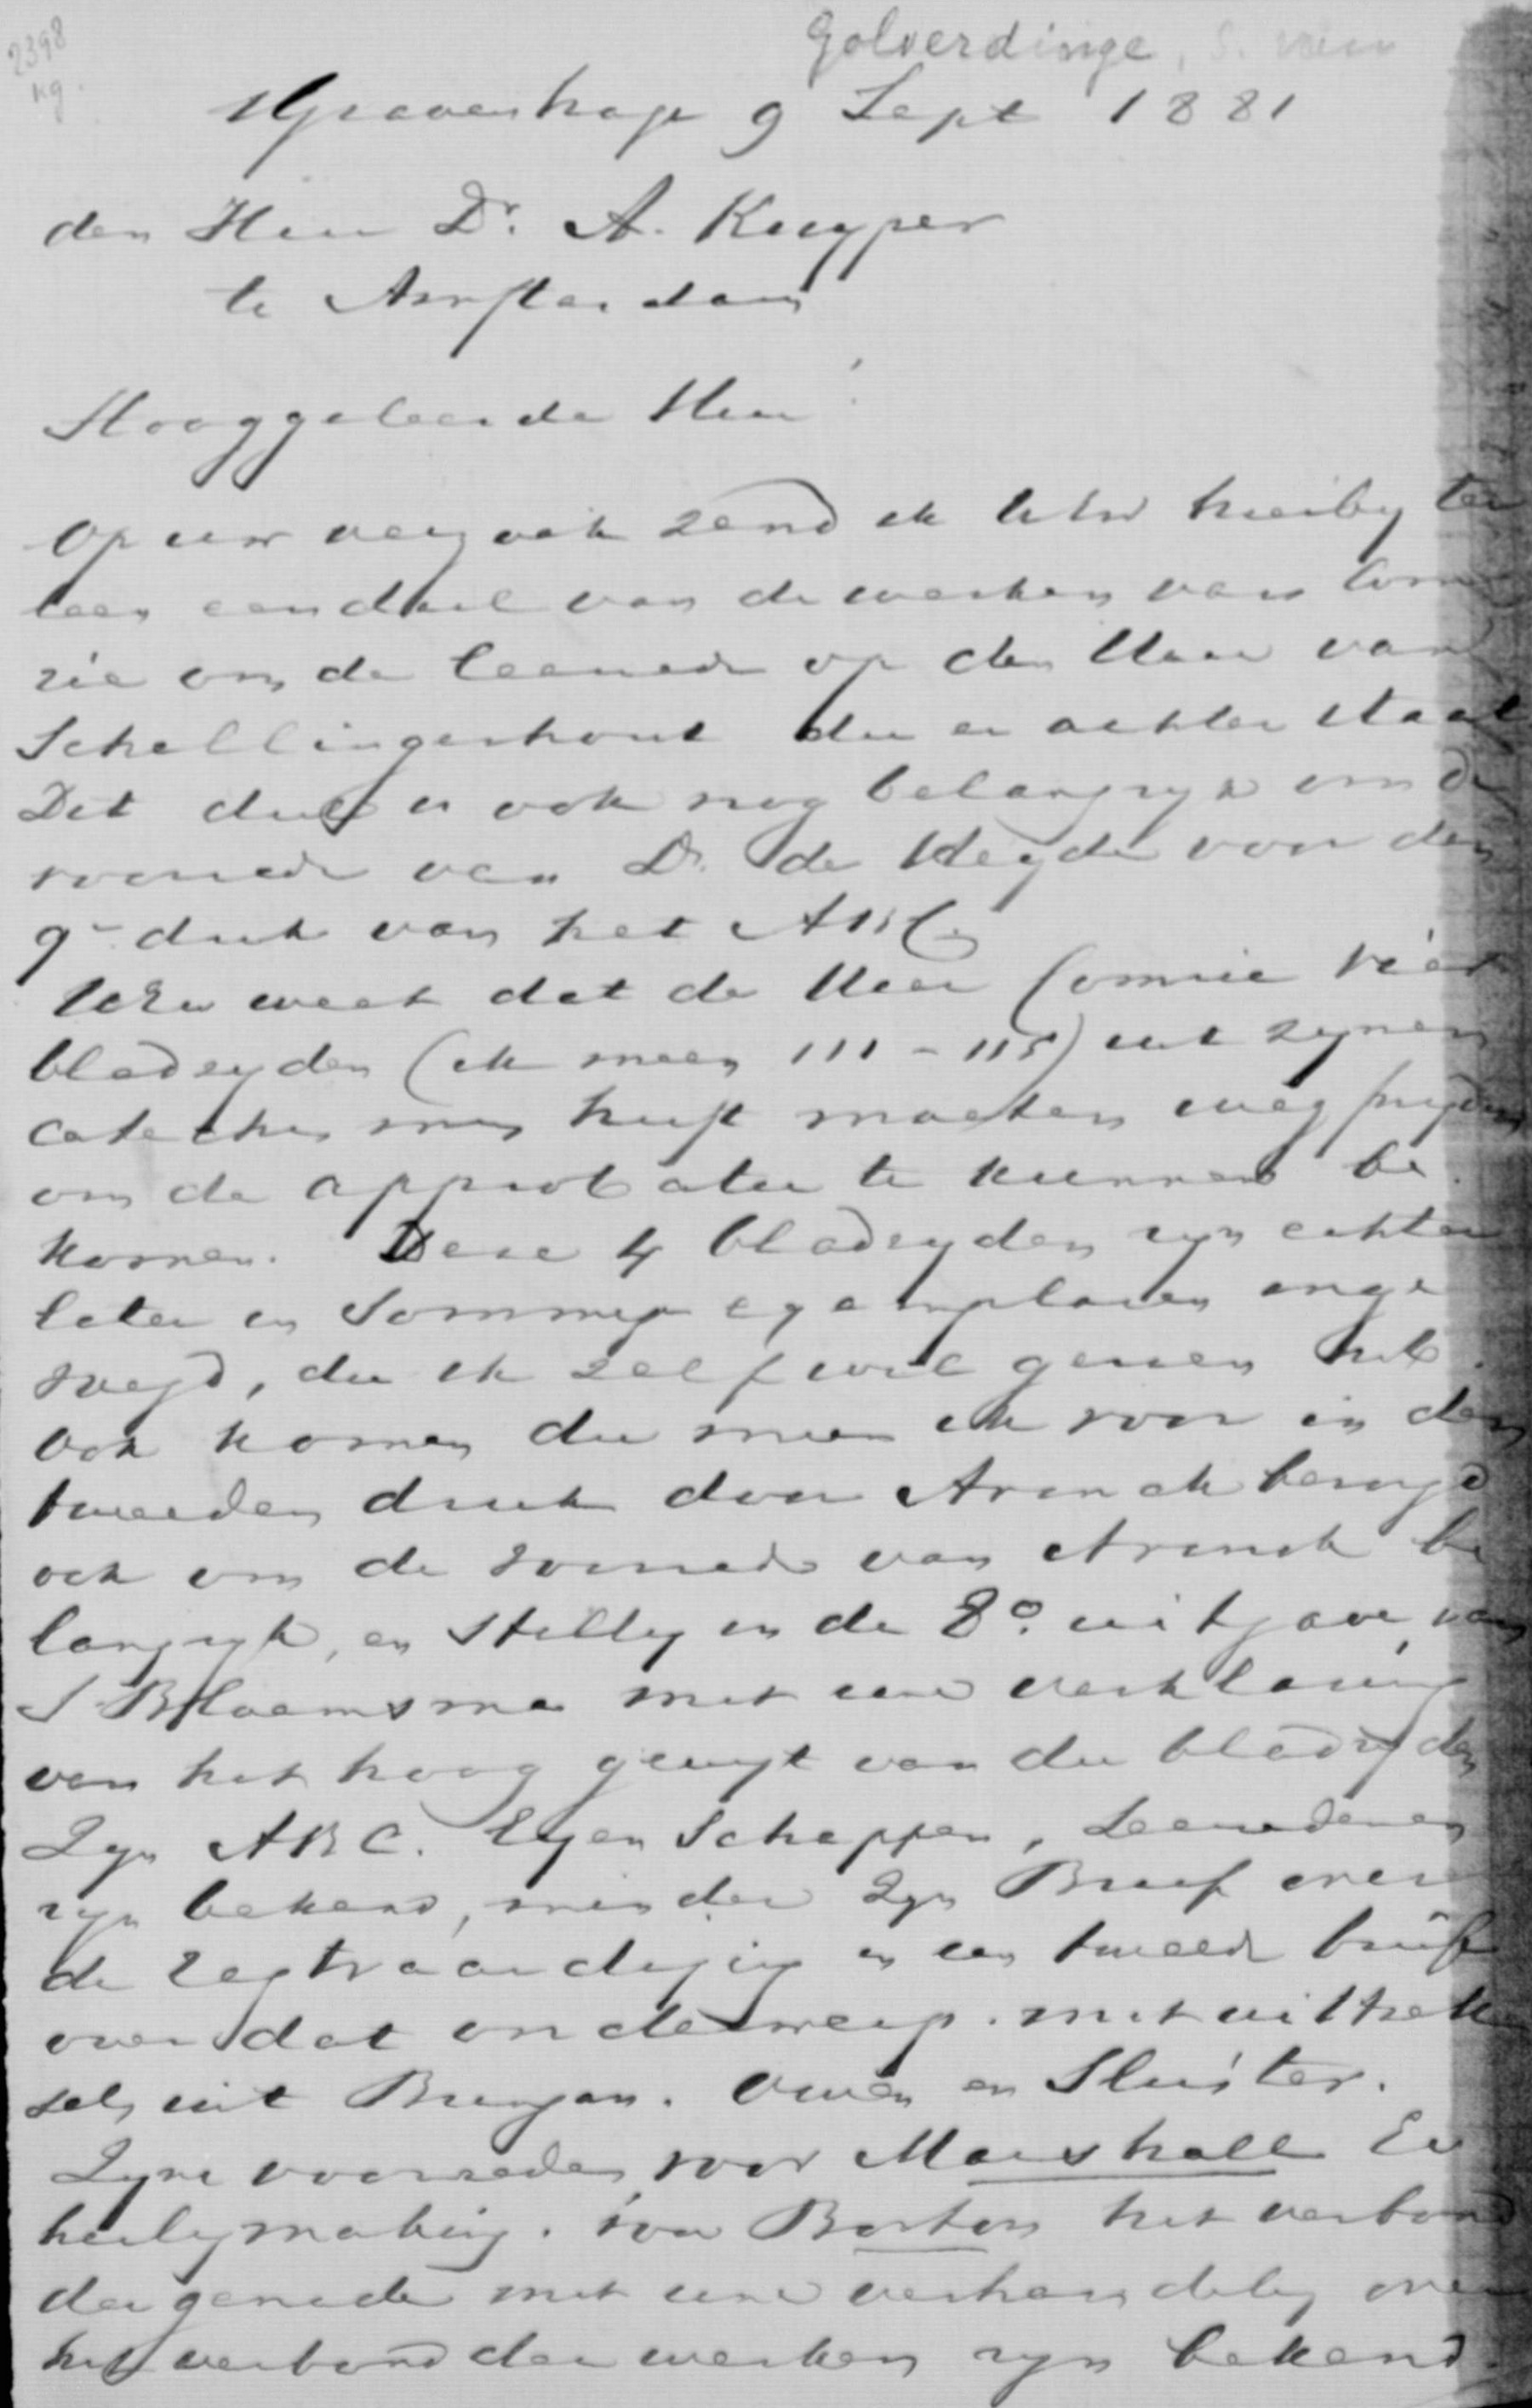 2398
kg.
Golverdinge, S. van
'sGravenhage 9 Sept 1881
den Heer Dr. A. Kuyper
te Amsterdam
Hooggeleerde Heer!
Op uw verzoek zend ik UEw hierbij ter
leen een deel van de werken van Com
rie om de leerrede op den Heer van
Schellingerhout die er achter staat
Dit deel is ook nog belangrijk om de
voorrede van Dr. de Heyde voor den
9e druk van het ABC.
UEw weet dat de Heer Comrie vier
bladzyden (ik meen 111-115) uit zynen
catechismus heeft moeten wegsnyden
om de approbatie te kunnen be
komen. Deze 4 bladzyden zyn echter
later in sommige exemplaren inge
voegd, die ik zelf wel gezien heb.
Ook komen die meen ik voor in den
tweeden druk door Arinck bezorgd
ook om de voorrede van Arinck be
langryk, en stellig in de 8o. uitgave van
S Bloemsma met eene verklaring
van het hoog gewigt van die bladzyden
Zyn ABC. Eigenschappen, Leerredenen
zyn bekend, minder zyn Brief over
de regtvaardiging en een tweede brief
over dat onderwerp. met uittrek
sels uit Bunyan. Owen en Sluiter.
Zyne voorreden voor Marshall Ev
heiligmaking. voor Boston het verbond
der genade met eene verhandeling over
het verbond der werken zyn bekend.